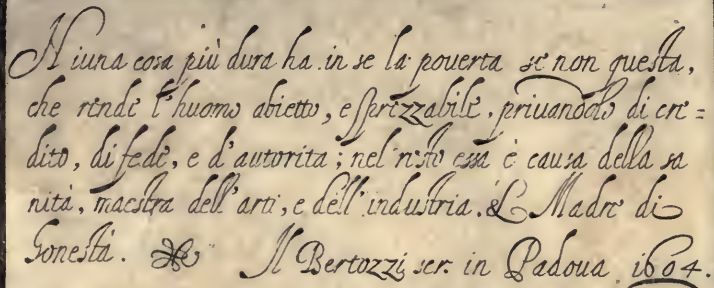 Niuna cosa più dura ha in se la pouerta se non questa,
che rende l'huomo abietto, e sprezzabile, priuandolo di cre=
dito, di fede, e d'autorita; nel resto essa è causa della sa
nità, maestra dell'arti, e dell'industria. & Madre di
honestà.
Il Bertozzi scr. in Padoua 1604.